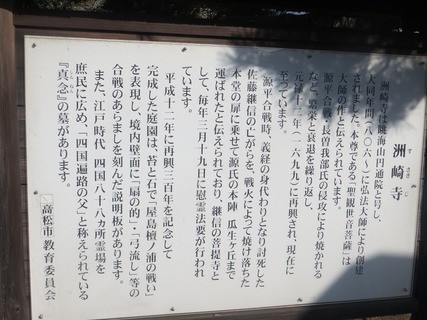 洲崎寺
すさきじ
洲崎寺は眺海山円通院と号し、
大同年間(八〇六～)に弘法大師により創建
されました。本尊である「聖観世音菩薩」は
大師の作と伝えられています。
源平合戦・長曽我部氏の侵攻により焼かれる
など、繁栄と衰退を繰り返し
元禄十二年(一六九九)に再興され、現在に
至っています。
源平合戦時、義経の身代わりとなり討死した
佐藤継信の亡がらを、戦火によって焼け落ちた
本堂の扉に乗せて源氏の本陣 瓜生ヶ丘まで
運ばれたと伝えられており、継信の菩提寺と
して、毎年三月十九日に慰霊法要が行われ
ています。
平成十二年に再興三百年を記念して
完成した庭園は、苔と石で「屋島檀ノ浦の戦い」
を表現し、境内壁面に「扇の的」・「弓流し」等の
合戦のあらましを刻んだ説明板があります。
また、江戸時代 四国八十八ヵ所霊場を
庶民に広め、「四国遍路の父」と称えられている
『真念』の墓があります。
しんねん
高松市教育委員会